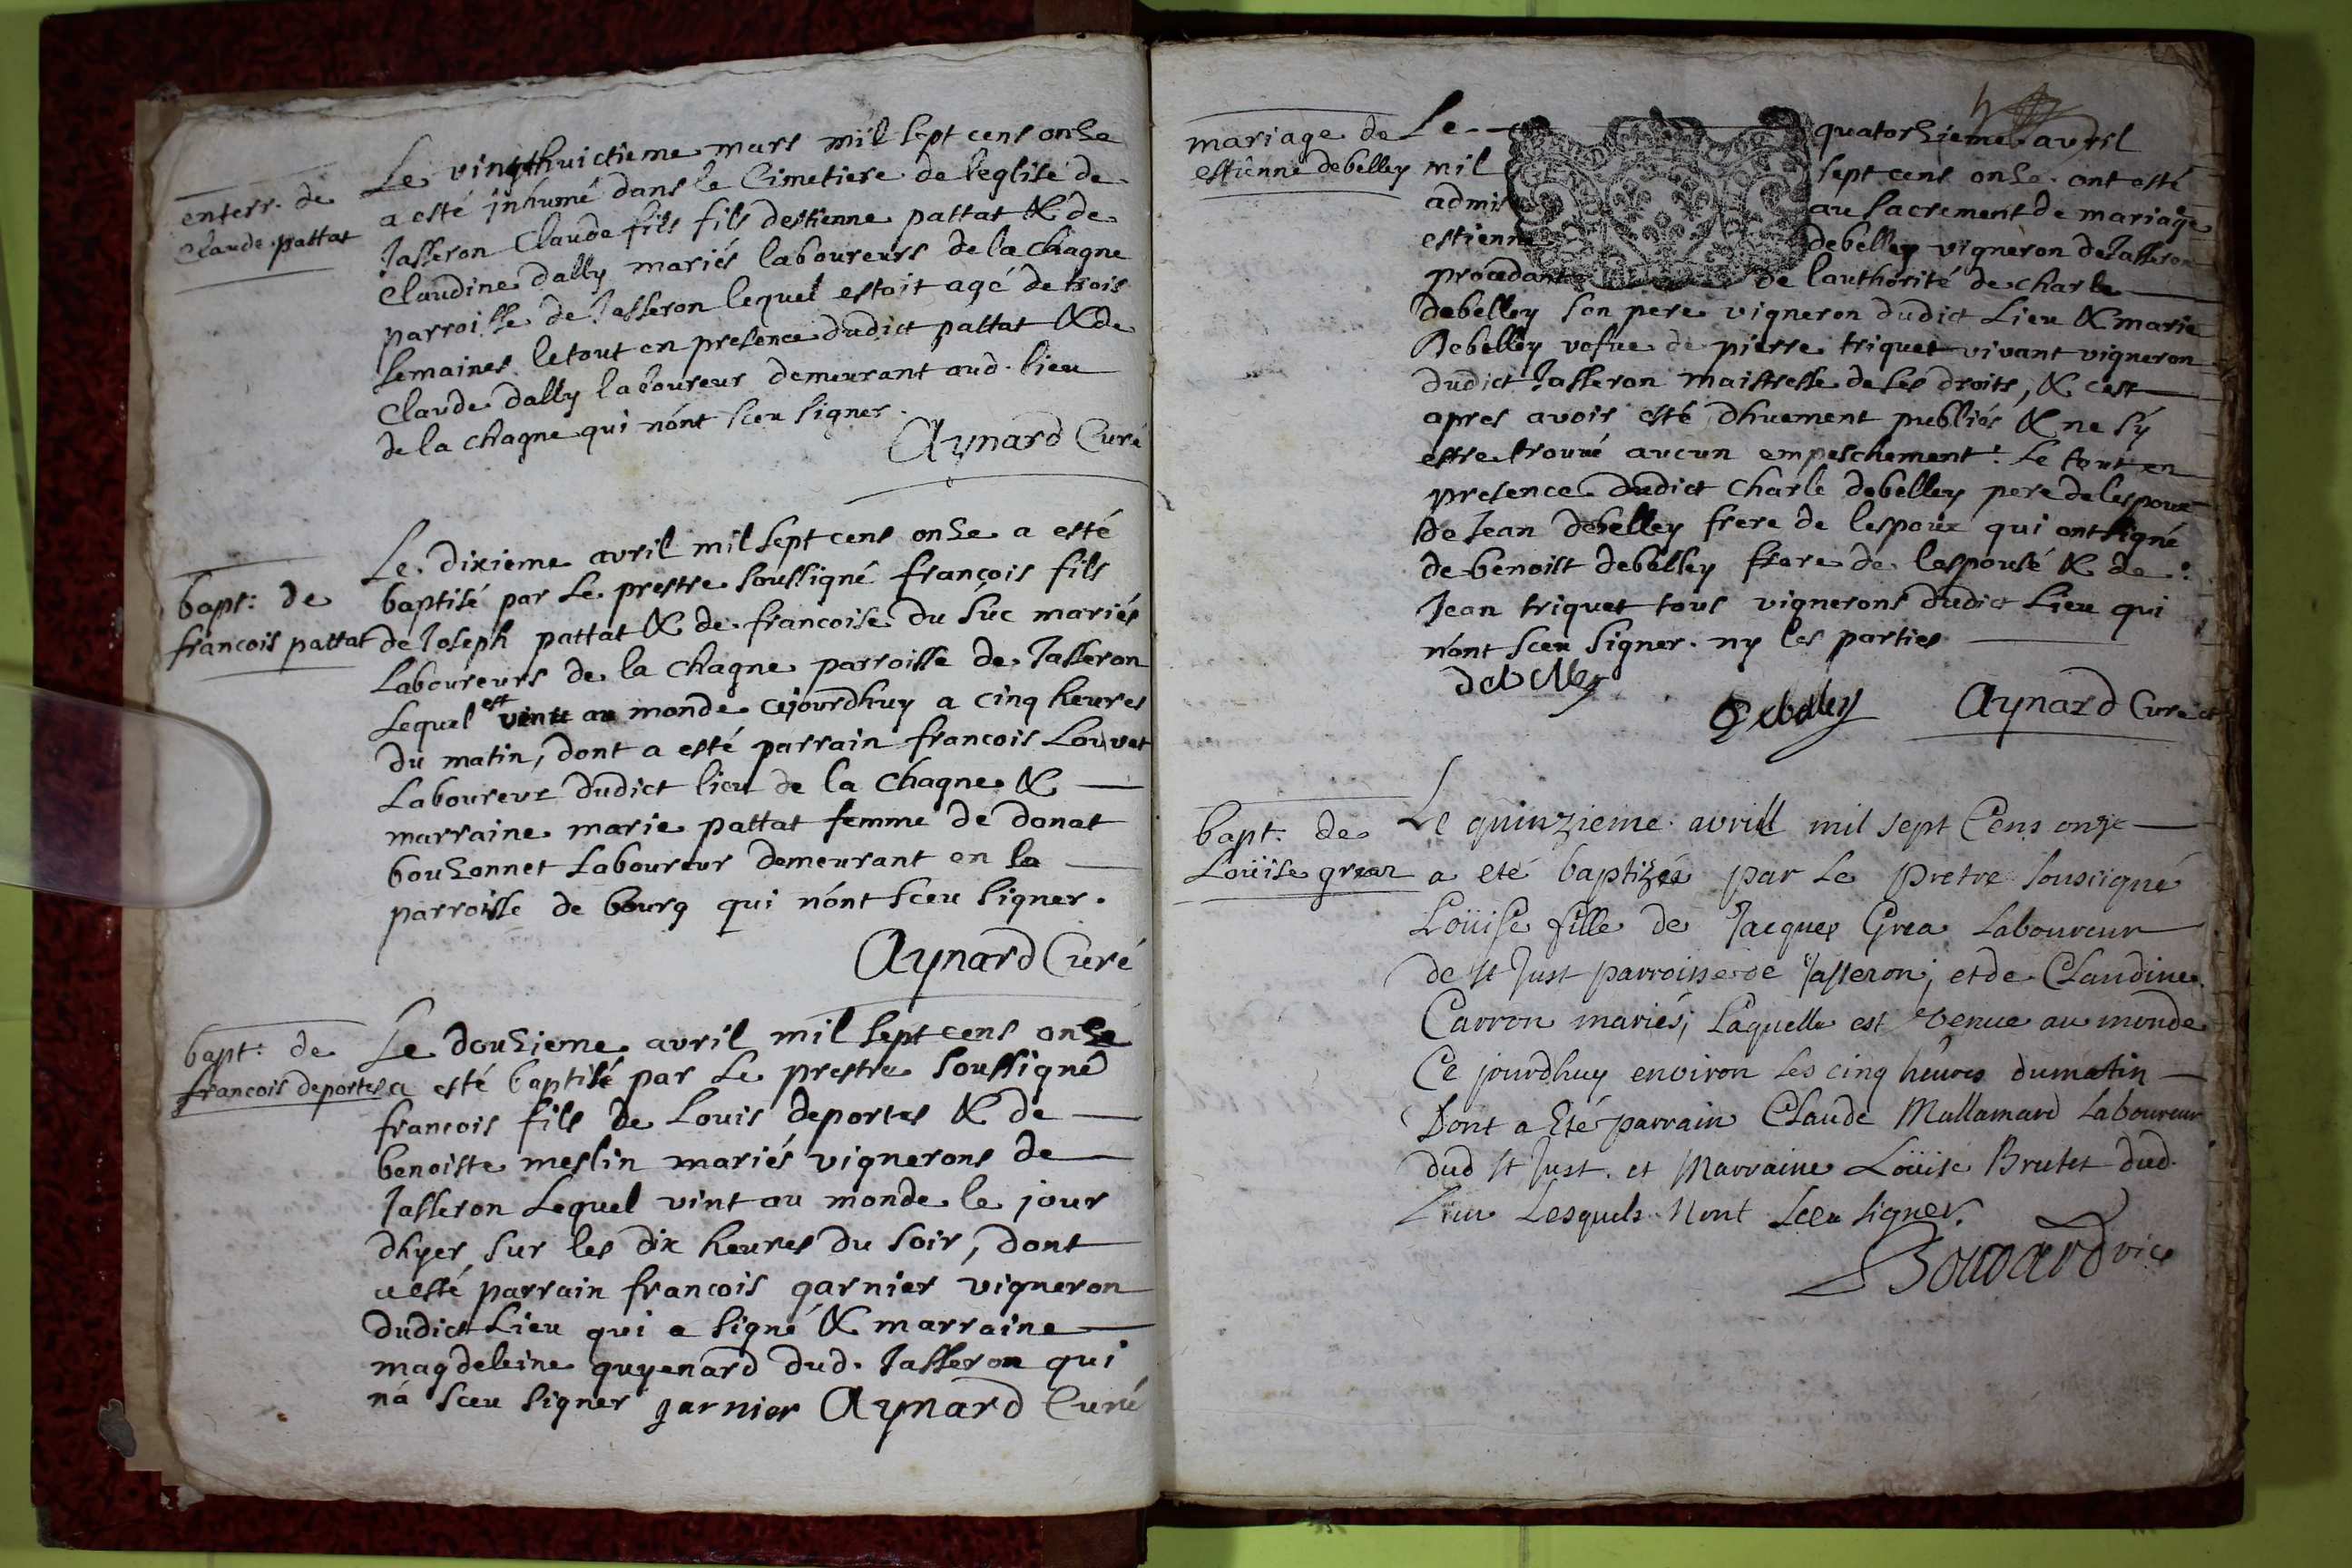 enterr. de
Claude pattat
Le vingthuictieme mars mil sept cens onze
a esté jnhumé dans le Cimetiere de leglise de
Jasseron Claude fils fils destienne pattat & de
Claudine dally mariés laboureurs de la chagne
parroisse de Jasseron lequel estoit agé de trois
semaines. le tout en presence dudict pattat & de
Claude dally laboureur demeurant aud. lieu
de la chagne qui nónt sceu signer.
Aynard Curé
bapt: de
francois pattat
Le dixieme avril mil sept cens onze a esté
baptisé par Le prestre soussigné françois fils
de Joseph pattat & de francoise du suc mariés
Laboureurs de la chagne parroisse de Jasseron
Lequel est venu au monde cejourdhuy a cinq heures
du matin, dont a esté parrain françois Louvet
Laboureur dudict lieu de la chagne &
marraine marie pattat femme de donat
bouzonnet Laboureur demeurant en la
parroisse de bourg qui nónt sceu signer.
Aynard Curé
bapt: de
francois deportes
Le douzieme avril mil sept cens onze
a esté baptisé par Le prestre soussigné
francois fils de Louis deportes & de
benoiste meslin mariés vignerons de
Jasseron Lequel vint au monde le jour
dhyer sur les dix heures du soir, dont
a esté parrain francois garnier vigneron
dudict Lieu qui a signé & marraine
magdeleine guyenard dud. Jasseron qui
ná sceu signer garnier Aynard Curé
mariage de
estienne debelley
Le quatorzieme avril
mil sept cens onze. ont esté
admis au sacrement de mariage
estienne debelley vigneron de Jasseron
procedant de lauthorité de charle
debelley son pere vigneron dudict Lieu & marie
Debelley vefue de pierre triquet vivant vigneron
dudict Jasseron maistresse de ses droits, & cest
apres avoir esté dhuement publiés & ne sÿ
estre trouué aucun empeschement: Le tout en
presence dudict charle debelley pere de lespoux
de Jean debelley frere de lespoux qui ont signé
de benoist debelley frere de lespousé & de:
Jean triquet tous vignerons dudict Lieu qui
nónt sceu signer. ny les parties
debelley
Debelley Aynard Curé
bapt: de
Loüise grear
Le quinzieme avrill mil sept Cens onze
a eté baptizée par Le pretre sousigné
Loüise fille de Jacques Grea Laboureur
de st Just parroisse de Jasseron; et de Claudine
Carron mariés; Laquelle est venue au monde
Ce jourdhuy environ les cinq heures du matin
Dont a Eté parrain Claude Mallamard Laboureur
dud st Just. et Marraine Loüise Brutet dud.
Lieu Lesquels Nont sceu signer.
Bouvard vice